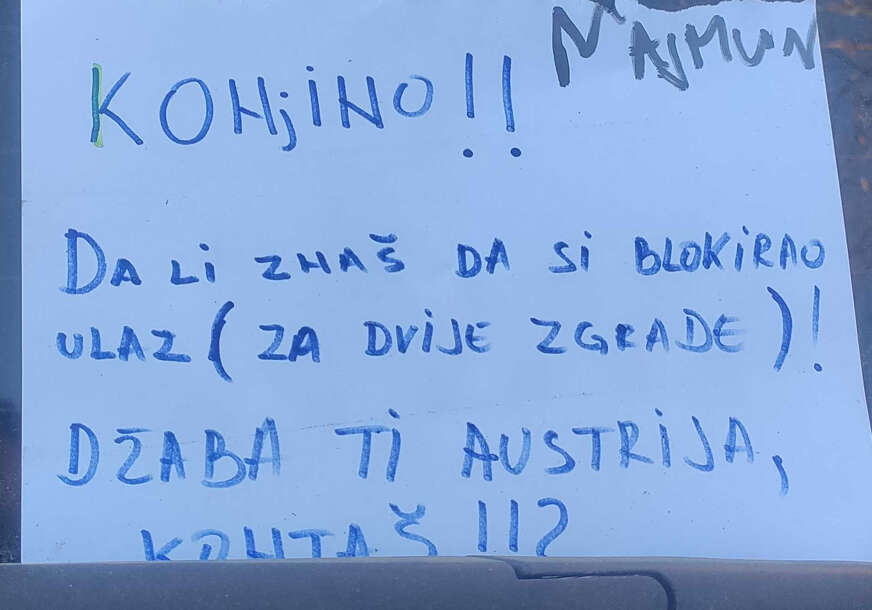 MAJMUN
KONJiNO!!
DA Li ZNAŠ DA Si BLOKiRAO
ULAZ (ZA DViJE ZGRADE)!
DŽABA Ti AUSTRiJA,
KONTAŠ!!?